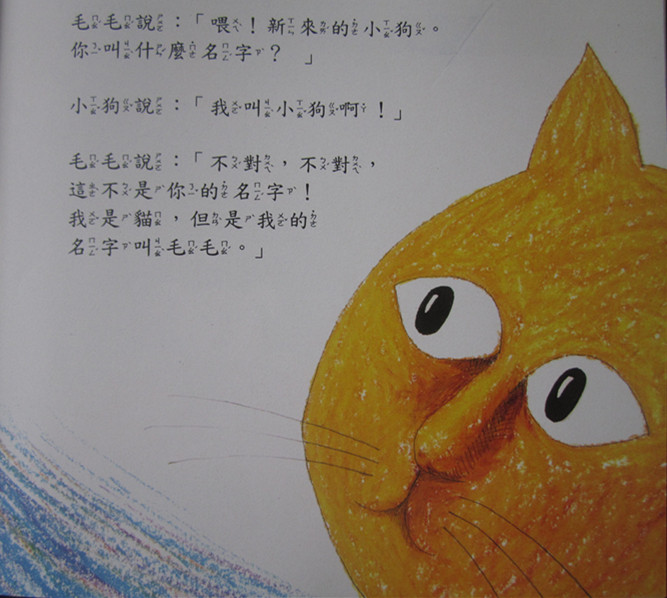 毛毛說：「喂！新來的小狗。
你叫什麼名字？　」
小狗說：「我叫小狗啊！」
毛毛說：「不對，不對，
這不是你的名字！
我是貓，但是我的
名字叫毛毛。」